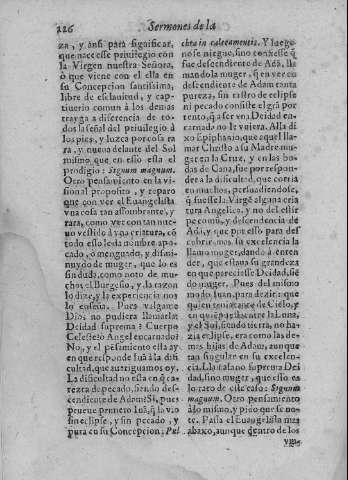 226 Sermones de la
za, y ansi para significar,
que nace esse priuilegio con
la Virgen nuestra Señora,
ò que viene con el ella en
su Concepcion santissima,
libre de esclauitud, y cap-
tiuerio comun à los demas
tray ga a diferencia de to-
dos la señal del priuilegio à
los pies, y luzca por cosa ra
ra, y nueua delante del Sol
mismo que en esso esta el
prodigio: Signum magnum.
Otro pensamiento en la vi-
sion a proposito, y reparo
que con ver el Euangelista
vna cosa tan assombrante, y
rara, como ver con tan nue-
uo vestido à vna criatura, cō
todo esso le da nombre apo-
cado, ò menguado, y dismi-
nuydo de muger, que lo es
sin duda, como noto de mu-
chos el Burgense, y la razon
lo dize, y la experiencia nos
lo enseña. Pues valgame
Dios, no pudiera llamarla
Deidad suprema? Cuerpo
Celeste? o Angel encarnado?
No, y el pensamiento esta ay
en que responde San Iuã à la difi
cultad, que aueriguamos oy.
La dificultad no esta en q̃ ca-
rezca de pecado, siendo des-
cendiente de Adam? Si, pues
prueue primero Iuã, q̃ la vio
sin eclipse, y sin pecado, y
pura en su Concepcion; Pul
chra in caleeamentis. Y luego
no se niegue, sino confiesse q̃
fue descendiente de Adã, lla
mandola muger, q̃ en ver en
descendiente de Adam tanta
pureza, sin rastro de eclipse
ni pecado consiste el grã por
tento, q̃ a ser vna Deidad en-
carnada no le vuiera. Alla di
xo Epiphanio, que aquel lla-
mar Christo a su Madre mu-
ger en la Cruz, y en las bo-
das de Cana, fue por respon-
der a la dificultad, que corria
en muchos, persuadiendose,
q̃ fuesse la Virgē alguna cria
tura Angelica, y no del estir
pe comũ, y descendencia de
Adã, y que por esso para des
cubrir mas su excelencia la
llamo muger, dando à enten
der, que estaua su grandeza
en que pareciesse Deidad, siē
do muger. Pues del mismo
modo Iuan, para dezir: que
quien tenia talle de Cielo, y
en quē por llano entre la Luna,
y el Sol, siendo tierra, no ha-
zia eclipse, era como las de-
mas hijas de Adam, aunque
tan singular en su excelen-
cia. Llamala no suprema Dei
dad, sino muger, que esso es
lo raro de este caso: Signum
magnum. Otro pensamiento
à lo mismo, y pido que se no-
te. Passa el Euangelista mas
abaxo, aunque dentro de los